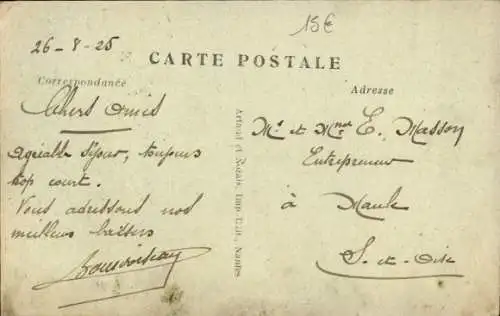 15€
26-8-25
CARTE POSTALE
Correspondance
Adresse
Chers Amis
Agréable séjour, toujours
top court.
Vous adressons nos
meilleurs baisers
Mr et Mme E. Masson
Entrepreneur
à
Maule
S.-et-Oise
Artaud et Nozais, Imp.-Edit., Nantes